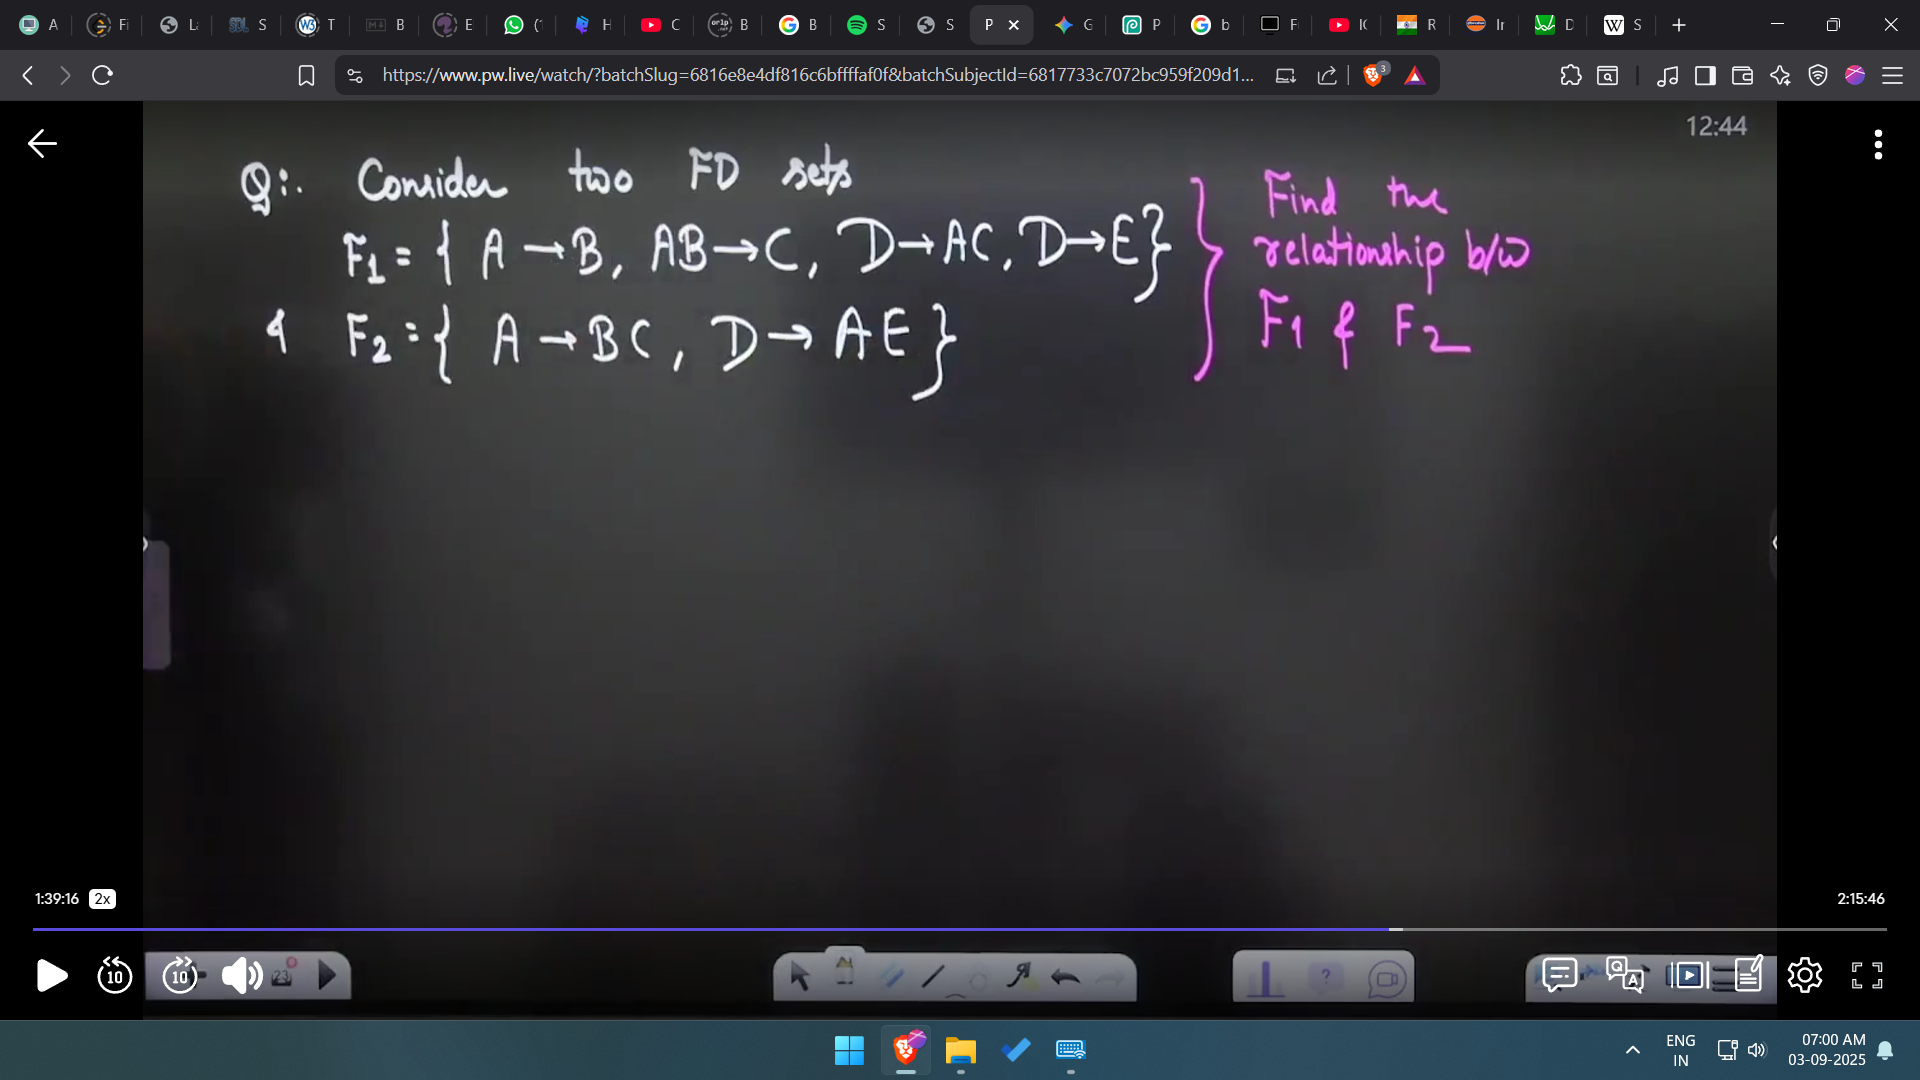 A
Fi
La
S
T
B
E
(
H
C
B
B
S
S
P
G
P
b
F
IC
R
In
D
S
https://www.pw.live/watch/?batchSlug=6816e8e4df816c6bffffaf0f&batchSubjectId=6817733c7072bc959f209d1...
3
12:44
Q:. Consider two FD sets
F1 = { A → B, AB → C, D → AC, D → E}
& F2 = { A → BC, D → AE }
Find the
relationship b/w
F1 & F2
1:39:16 2x
2:15:46
10
10
23
?
Q A
ENG
IN
07:00 AM
03-09-2025